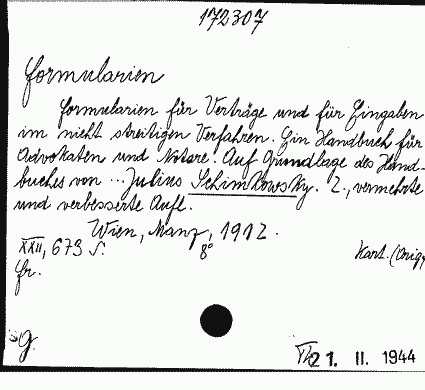 172307
Formularien
Formularien für Verträge und für Eingaben
im nicht streitigen Verfahren. Ein Handbuch für
Advokaten und Notare. Auf Grundlage des Hand-
buches von ... Julius Schimkowsky. 2., vermehrte
und verbesserte Aufl.
Wien, Manz, 1912.
XXII, 673 S. 8° Kart. (Orig.
fr.
g.
21. II. 1944